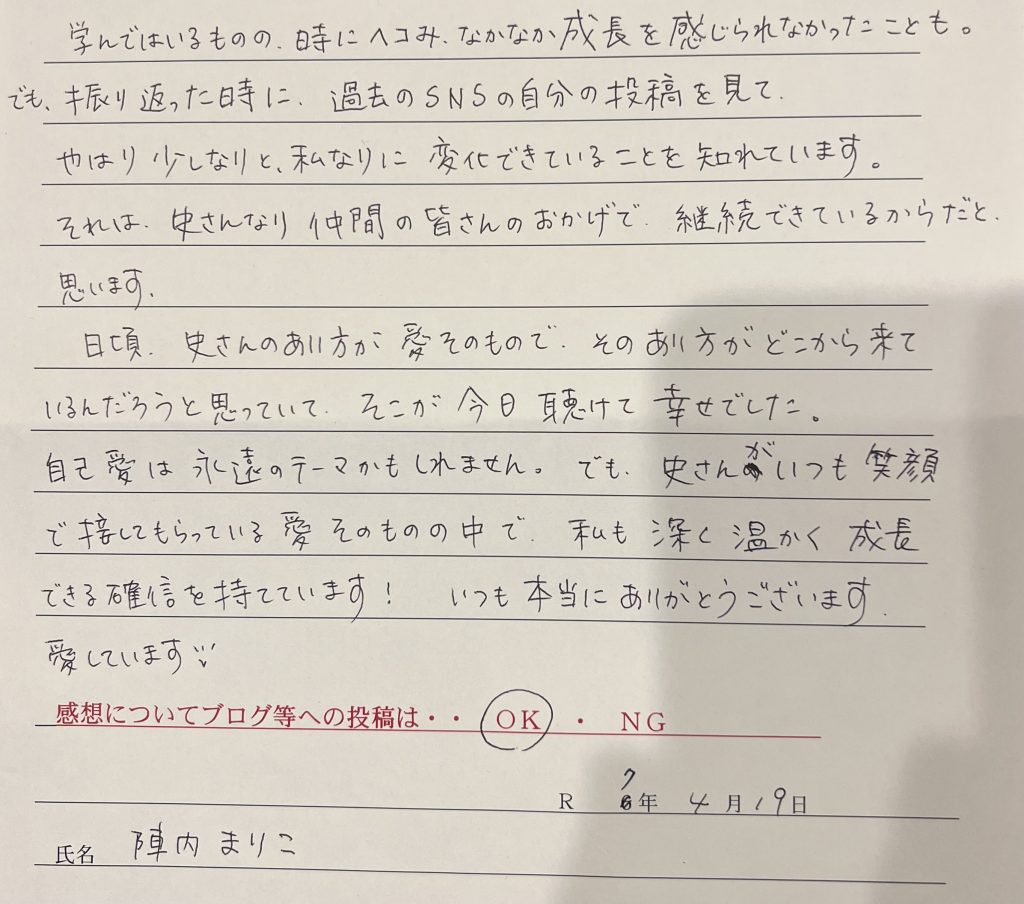 学んではいるものの、時にヘコみ、なかなか成長を感じられなかったことも。
でも、振り返った時に、過去のSNSの自分の投稿を見て、
やはり少しなりと、私なりに変化できていることを知れています。
それは、史さんなり仲間の皆さんのおかげで、継続できているからだと、
思います、
日頃、史さんのあり方が愛そのもので、そのあり方がどこから来て
いるんだろうと思っていて、そこが今日聴けて幸せでした。
自己愛は永遠のテーマかもしれません。でも、史さんがいつも笑顔
で接してもらっている愛そのものの中で、私も深く温かく成長
できる確信を持てています! いつも本当にありがとうございます、
愛しています
感想についてブログ等への投稿は・・ OK ・ NG
R 7年 4月19日
氏名 陣内まりこ